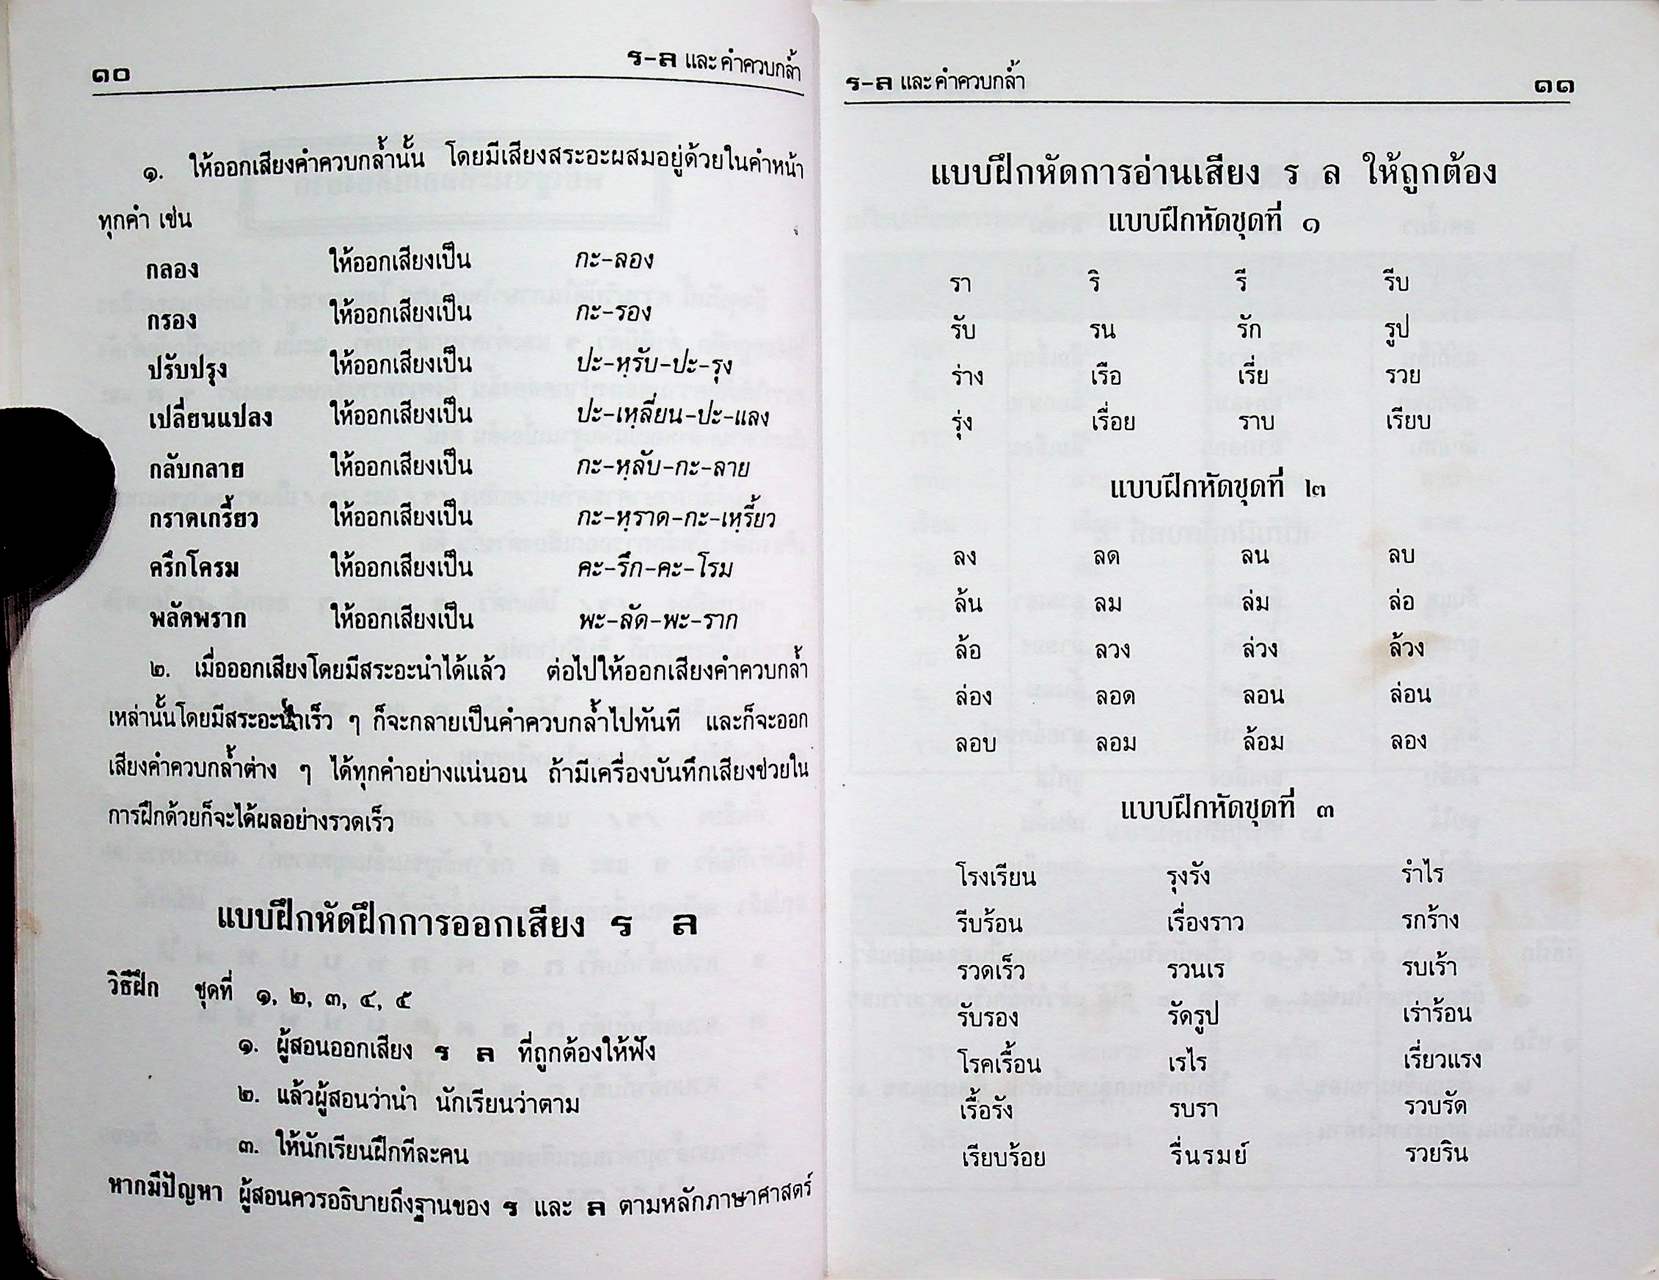 ๑๐ ร-ล และ คำควบกล้ำ
๑. ให้ออกเสียงคำควบกล้ำนั้น โดยมีเสียงสระอะผสมอยู่ด้วยในคำหน้า
ทุกคำ เช่น
กลอง ให้ออกเสียงเป็น กะ-ลอง
กรอง ให้ออกเสียงเป็น กะ-รอง
ปรับปรุง ให้ออกเสียงเป็น ปะ-หฺรับ-ปะ-รุง
เปลี่ยนแปลง ให้ออกเสียงเป็น ปะ-เหฺลี่ยน-ปะ-แลง
กลับกลาย ให้ออกเสียงเป็น กะ-หฺลับ-กะ-ลาย
กราดเกรี้ยว ให้ออกเสียงเป็น กะ-หฺราด-กะ-เหฺรี้ยว
ครึกโครม ให้ออกเสียงเป็น คะ-รึก-คะ-โรม
พลัดพราก ให้ออกเสียงเป็น พะ-ลัด-พะ-ราก
๒. เมื่อออกเสียงโดยมีสระอะนำได้แล้ว ต่อไปให้ออกเสียงคำควบกล้ำ
เหล่านั้นโดยมีสระอะนำเร็ว ๆ ก็จะกลายเป็นคำควบกล้ำไปทันที และก็จะออก
เสียงคำควบกล้ำต่าง ๆ ได้ทุกคำอย่างแน่นอน ถ้ามีเครื่องบันทึกเสียงช่วยใน
การฝึกด้วยก็จะได้ผลอย่างรวดเร็ว
แบบฝึกหัดฝึกการออกเสียง ร ล
วิธีฝึก ชุดที่ ๑, ๒, ๓, ๔, ๕
๑. ผู้สอนออกเสียง ร ล ที่ถูกต้องให้ฟัง
๒. แล้วผู้สอนว่านำ นักเรียนว่าตาม
๓. ให้นักเรียนฝึกทีละคน
หากมีปัญหา ผู้สอนควรอธิบายถึงฐานของ ร และ ล ตามหลักภาษาศาสตร์
ร-ล และ คำควบกล้ำ ๑๑
แบบฝึกหัดการอ่านเสียง ร ล ให้ถูกต้อง
แบบฝึกหัดชุดที่ ๑
รา ริ รี รีบ
รับ รน รัก รูป
ร่าง เรือ เรี่ย รวย
รุ่ง เรื่อย ราบ เรียบ
แบบฝึกหัดชุดที่ ๒
ลง ลด ลน ลบ
ล้น ลม ล่ม ล่อ
ล้อ ลวง ล่วง ล้วง
ล่อง ลอด ลอน ล่อน
ลอบ ลอม ล้อม ลอง
แบบฝึกหัดชุดที่ ๓
โรงเรียน รุงรัง รำไร
รีบร้อน เรื่องราว รกร้าง
รวดเร็ว รวนเร รบเร้า
รับรอง รัดรูป เร่าร้อน
โรคเรื้อน เรไร เรี่ยวแรง
เรื้อรัง รบรา รวบรัด
เรียบร้อย รื่นรมย์ รวยริน